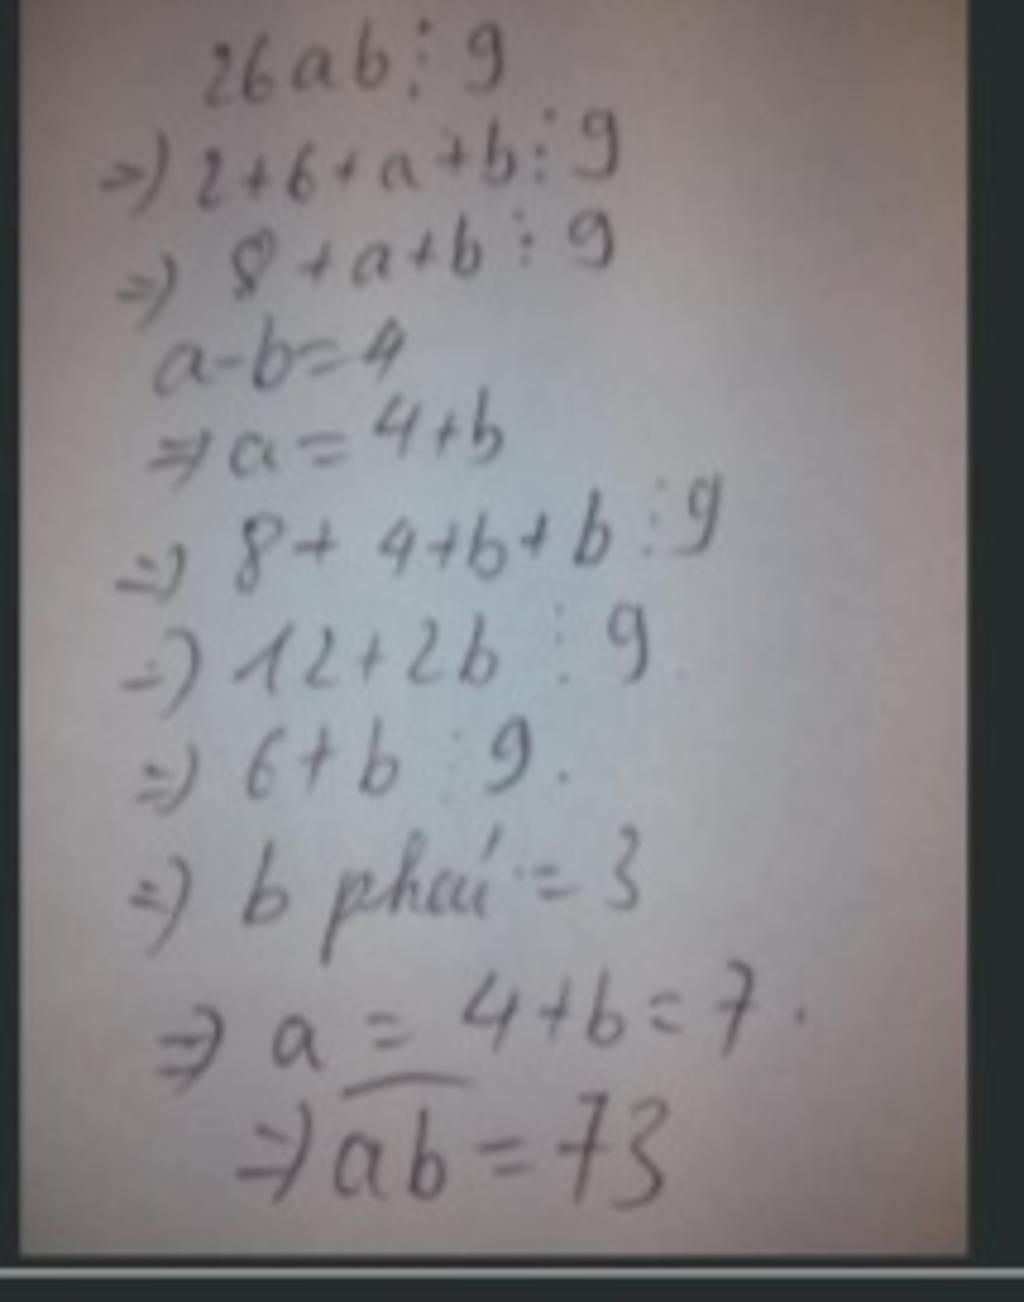 26ab ⋮ 9
=) 2+6+a+b ⋮ 9
=) 8+a+b ⋮ 9
a-b=4
=) a=4+b
=) 8+4+b+b ⋮ 9
=) 12+2b ⋮ 9
=) 6+b ⋮ 9.
=) b phải = 3
=) a = 4+b=7.
=) a̅b̅ = 73